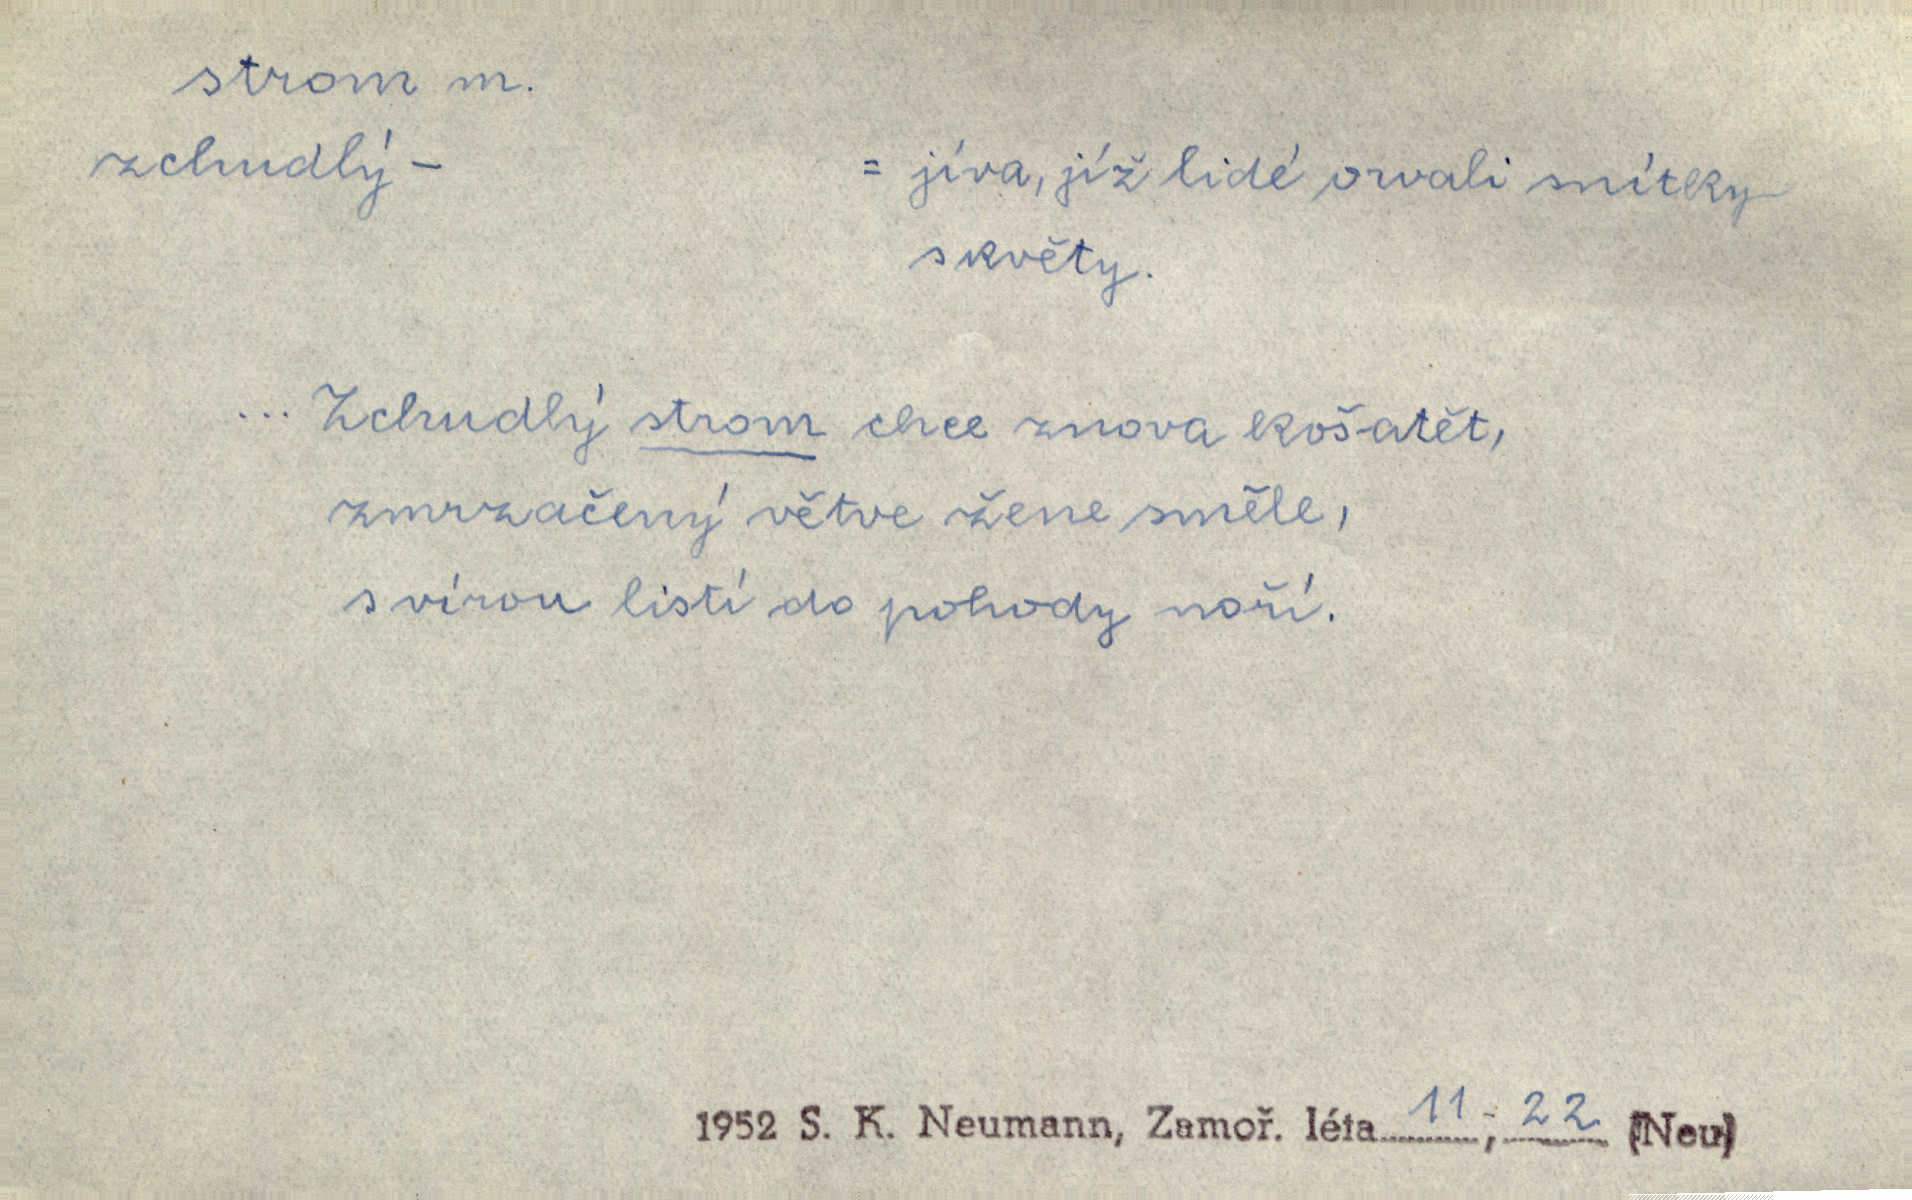 strom m.
zchudlý – = jíva, jíž lidé orvali snítky
s květy.
... Zchudlý strom chce znova košatět,
zmrzačený větve žene směle,
s vírou listí do pohody noří.
1952 S. K. Neumann, Zamoř. léta 11; 22 (Neu)